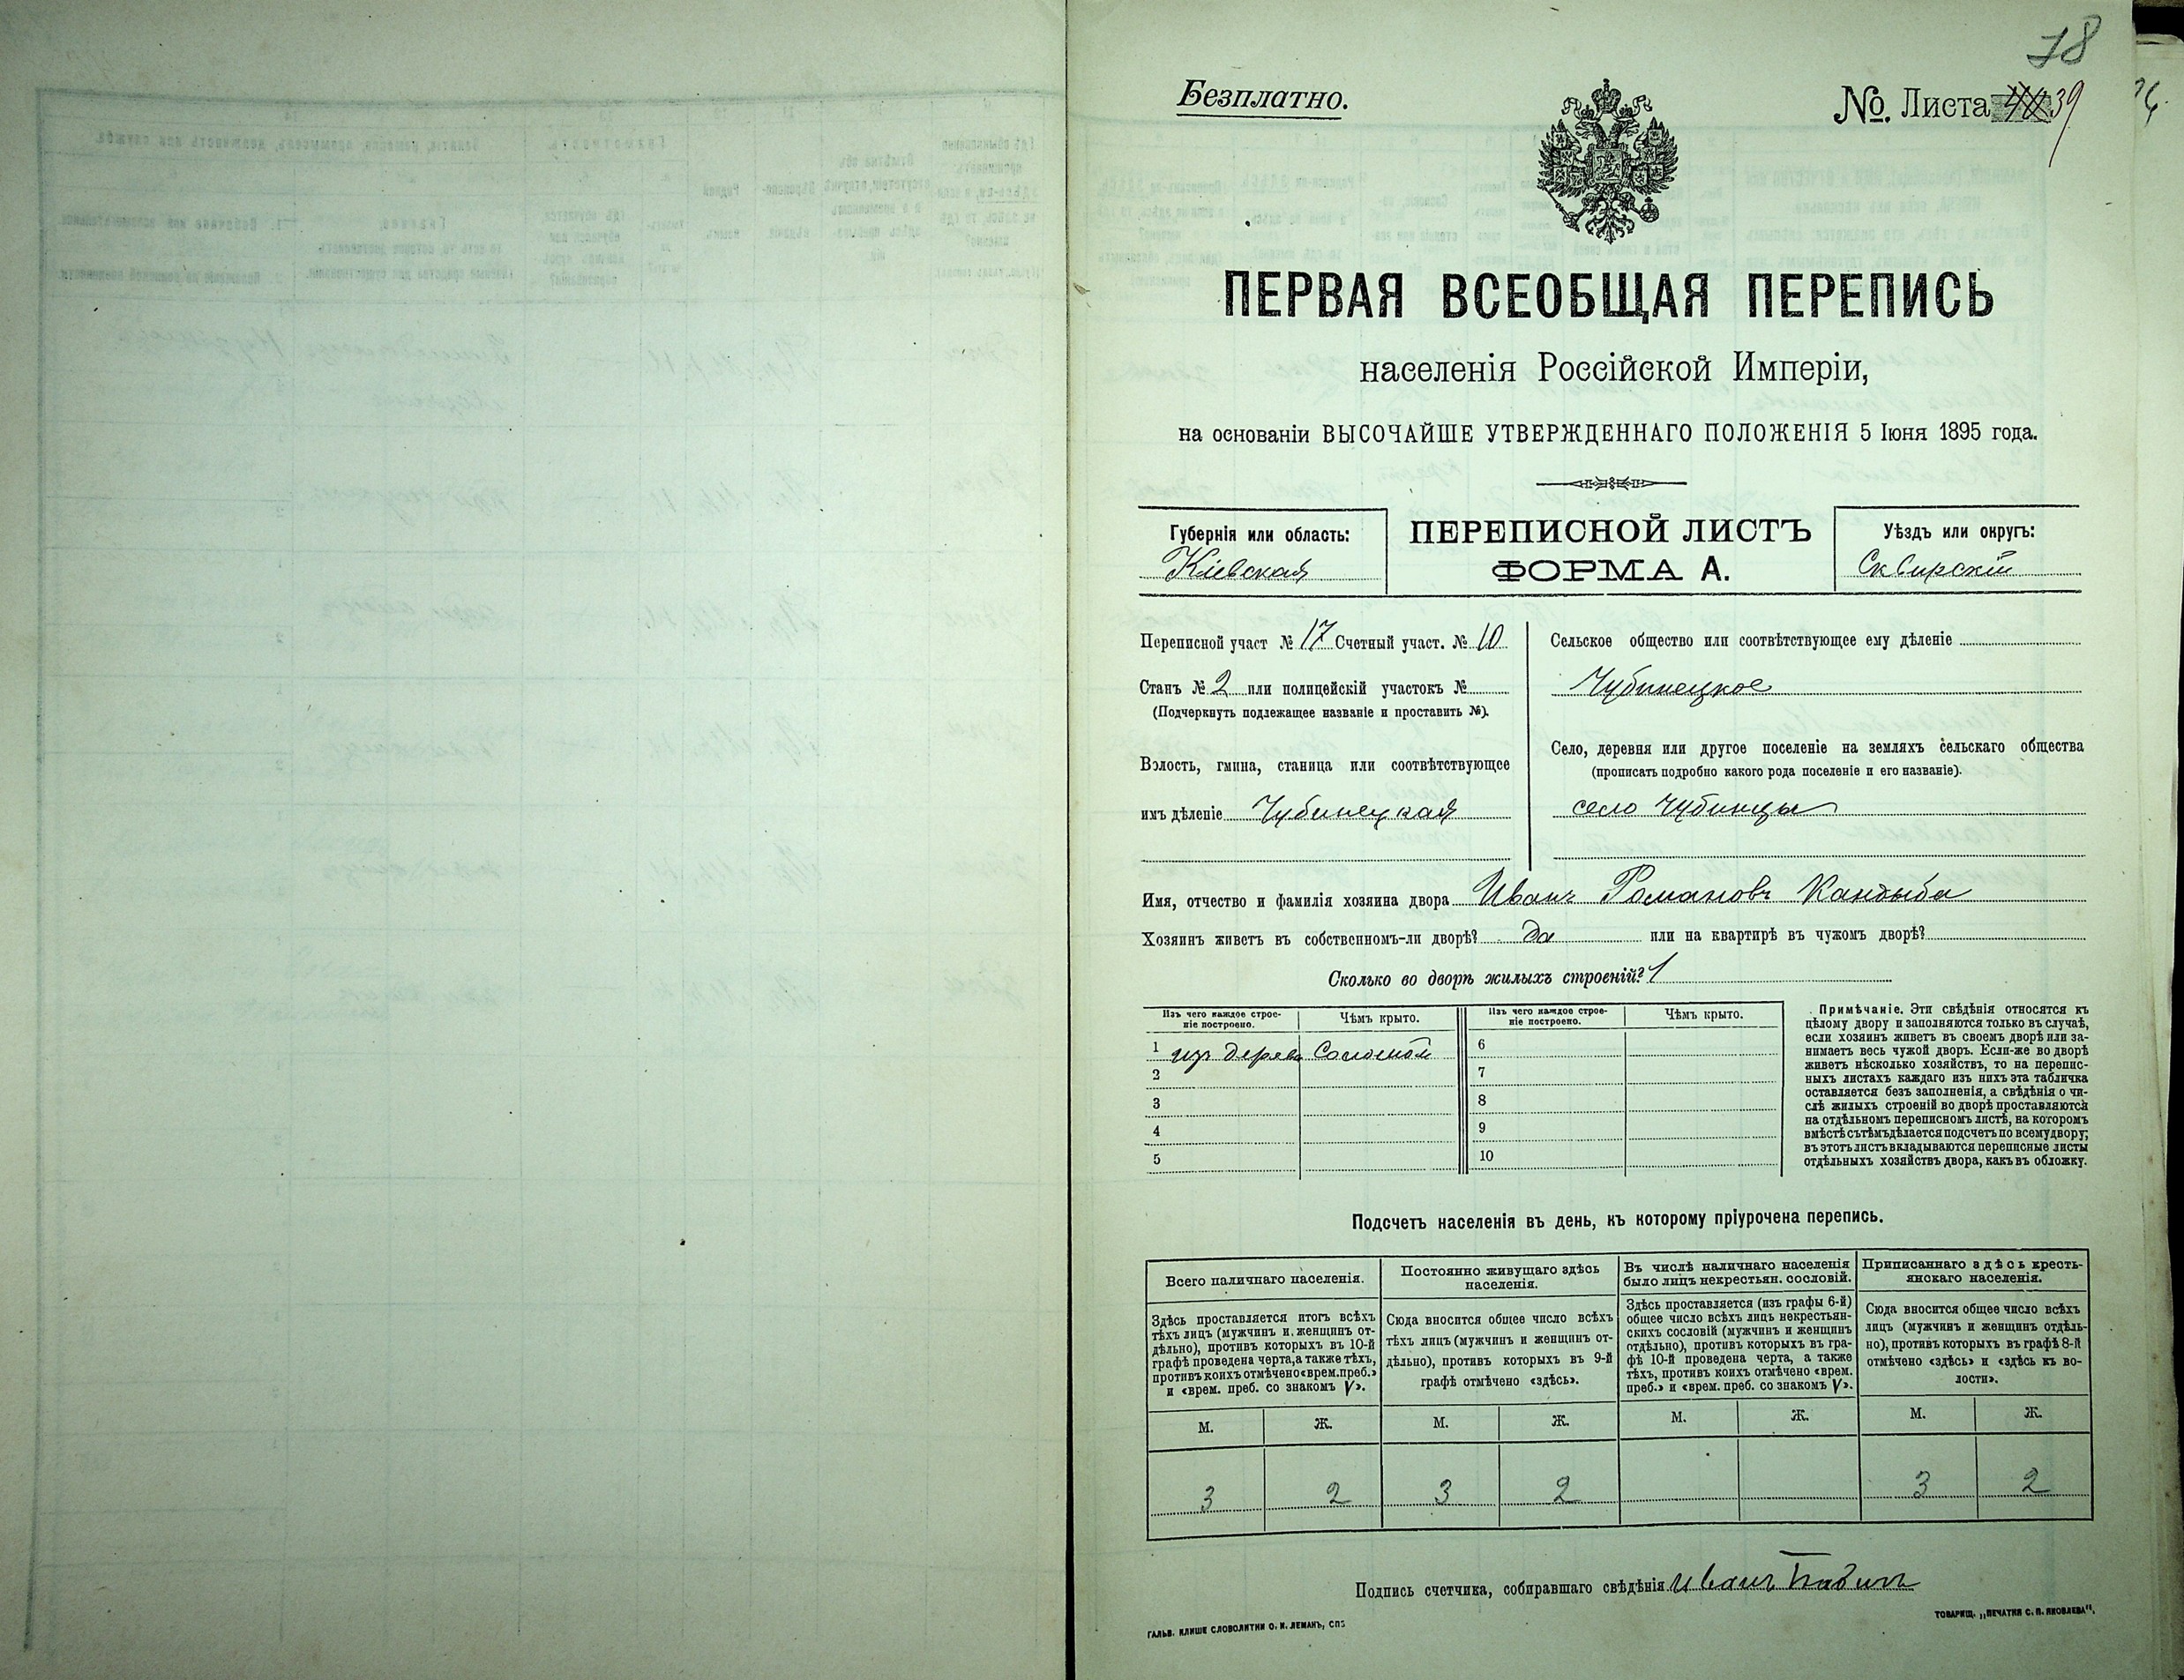 78
Безплатно.
№. Листа 39
ПЕРВАЯ ВСЕОБЩАЯ ПЕРЕПИСЬ
населенія Россійской Имперіи,
на основаніи ВЫСОЧАЙШЕ УТВЕРЖДЕННАГО ПОЛОЖЕНІЯ 5 Іюня 1895 года.
Губернія или область:
Кіевская
ПЕРЕПИСНОЙ ЛИСТЪ
ФОРМА А.
Уѣздъ или округъ:
Сквирскій
Переписной участ № 17 Счетный участ. № 10
Станъ № 2 или полицейскій участокъ №
(Подчеркнуть подлежащее названіе и проставить №).
Волость, гмина, станица или соотвѣтствующее
имъ дѣленіе Чубинецкая
Сельское общество или соотвѣтствующее ему дѣленіе
Чубинецкое
Село, деревня или другое поселеніе на земляхъ сельскаго общества
(прописать подробно какого рода поселеніе и его названіе).
село Чубинцы
Имя, отчество и фамилія хозяина двора Иванъ Романовъ Кандыба
Хозяинъ живетъ въ собственномъ-ли дворѣ? да или на квартирѣ въ чужомъ дворѣ?
Сколько во дворѣ жилыхъ строеній? 1
Изъ чего каждое строе-
ніе построено.
Чѣмъ крыто.
Изъ чего каждое строе-
ніе построено.
Чѣмъ крыто.
1 изъ дерева Соломой 6
2 7
3 8
4 9
5 10
Примѣчаніе. Эти свѣдѣнія относятся къ
цѣлому двору и заполняются только въ случаѣ,
если хозяинъ живетъ въ своемъ дворѣ или за-
нимаетъ весь чужой дворъ. Если-же во дворѣ
живетъ нѣсколько хозяйствъ, то на перепис-
ныхъ листахъ каждаго изъ нихъ эта табличка
оставляется безъ заполненія, а свѣдѣнія о чи-
слѣ жилыхъ строеній во дворѣ проставляются
на отдѣльномъ переписномъ листѣ, на которомъ
вмѣстѣ съ тѣмъ дѣлается подсчетъ по всему двору;
въ этотъ листъ вкладываются переписные листы
отдѣльныхъ хозяйствъ двора, какъ въ обложку.
Подсчетъ населенія въ день, къ которому пріурочена перепись.
Всего наличнаго населенія.
Здѣсь проставляется итогъ всѣхъ
тѣхъ лицъ (мужчинъ и женщинъ от-
дѣльно), противъ которыхъ въ 10-й
графѣ проведена черта, а также тѣхъ,
противъ коихъ отмѣчено «врем. преб.»
и «врем. преб. со знакомъ V».
Постоянно живущаго здѣсь
населенія.
Сюда вносится общее число всѣхъ
тѣхъ лицъ (мужчинъ и женщинъ от-
дѣльно), противъ которыхъ въ 9-й
графѣ отмѣчено «здѣсь».
Въ числѣ наличнаго населенія
было лицъ некрестьян. сословій.
Здѣсь проставляется (изъ графы 6-й)
общее число всѣхъ лицъ некрестьян-
скихъ сословій (мужчинъ и женщинъ
отдѣльно), противъ которыхъ въ гра-
фѣ 10-й проведена черта, а также
тѣхъ, противъ коихъ отмѣчено «врем.
преб.» и «врем. преб. со знакомъ V».
Приписаннаго здѣсь кресть-
янскаго населенія.
Сюда вносится общее число всѣхъ
лицъ (мужчинъ и женщинъ отдѣль-
но), противъ которыхъ въ графѣ 8-й
отмѣчено «здѣсь» и «здѣсь къ во-
лости».
М. Ж. М. Ж. М. Ж. М. Ж.
3 2 3 2 3 2
Подпись счетчика, собиравшаго свѣдѣнія Иванъ
ГАЛЬВ. КЛИШЕ СЛОВОЛИТНИ О. И. ЛЕМАНЪ, СПБ
ТОВАРИЩ. „ПЕЧАТНЯ С. П. ЯКОВЛЕВА“.